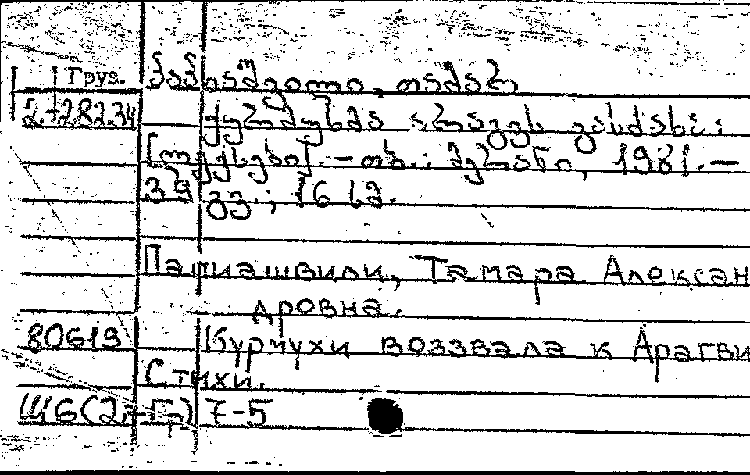 Груз. პაპიაშვილი, თამარ
2-28234 ქურმუხმა არაგვს გასძახა:
[ლექსები]. – თბ.: მერანი, 1981. –
39 გვ.; 16 სმ.
Папиашвили, Тамара Алексан
дровна.
80619 Курмухи воззвала к Арагви
Стихи.
Ш6(2=Г) 7-5